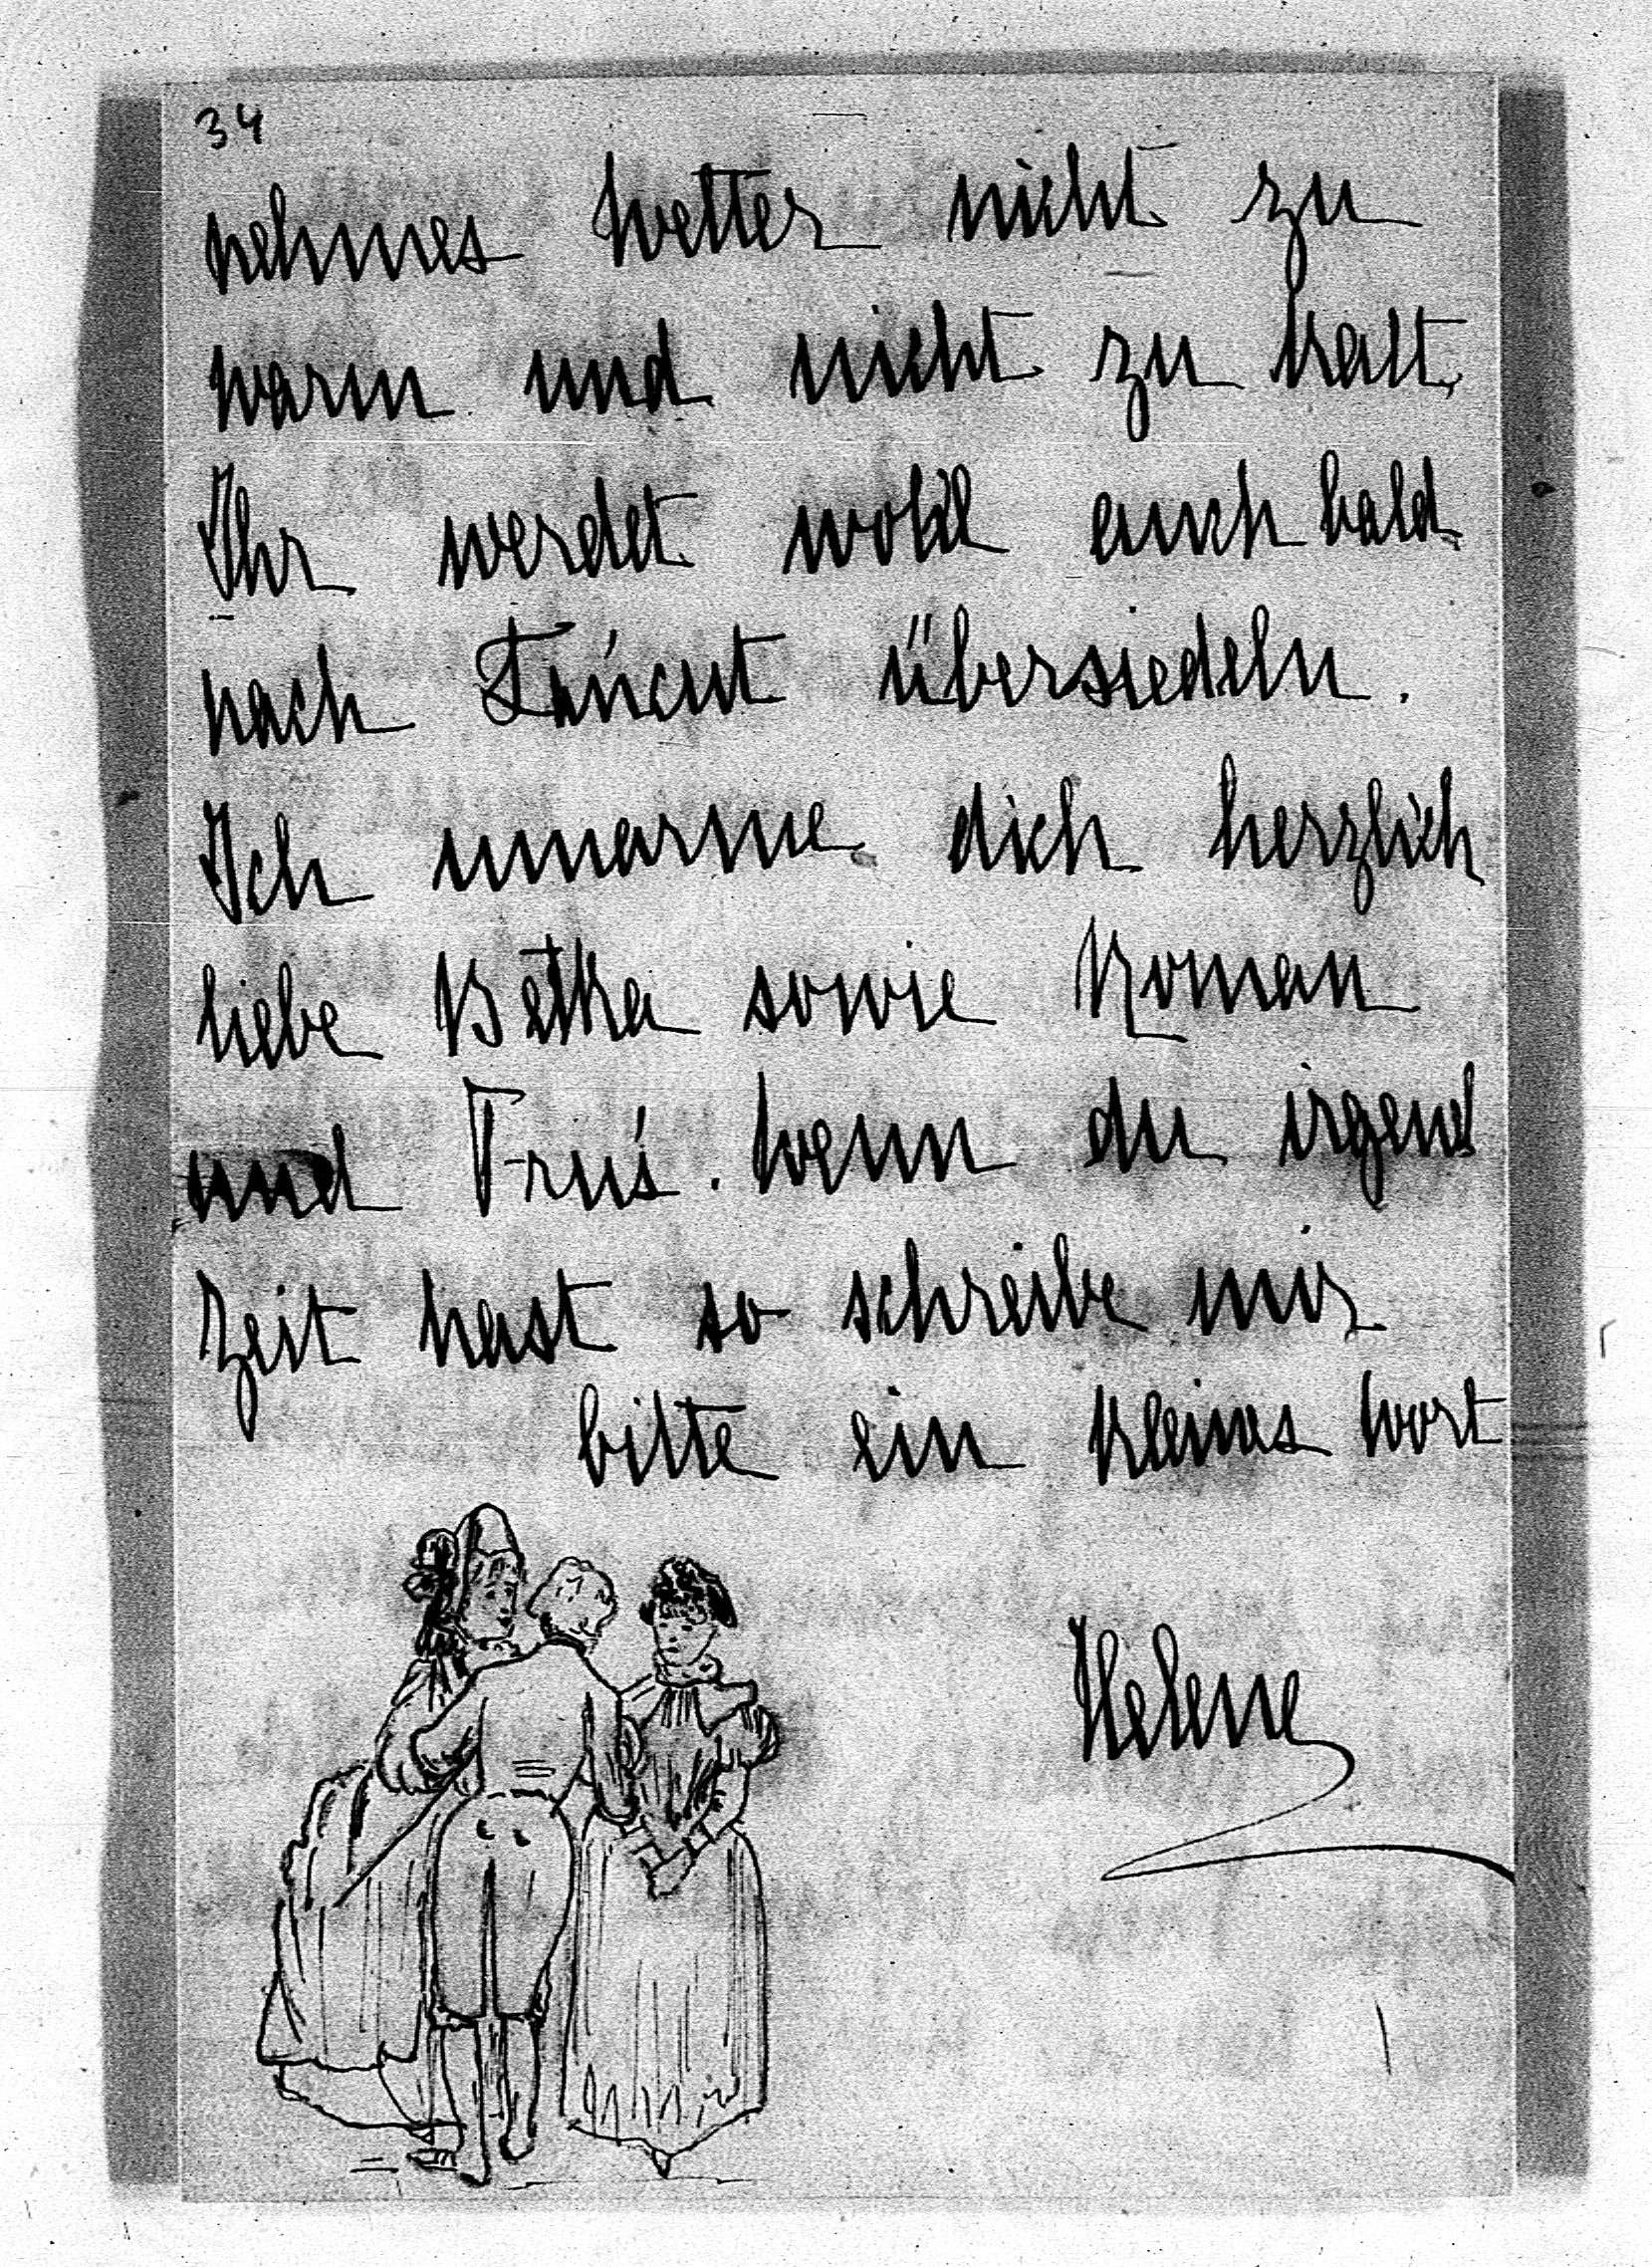 34
nehmes Wetter nicht zu
warm und nicht zu kalt,
Ihr werdet wohl auch bald
nach Łańcut übersiedeln.
Ich umarme dich herzlich
liebe Betka sowie Roman
und Truś. Wenn du irgend
Zeit hast so schreibe mir
bitte ein kleines Wort
Helene